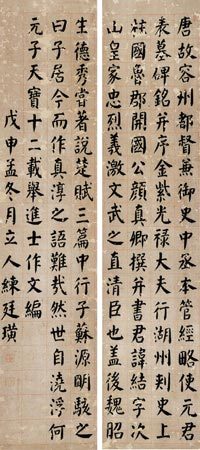 唐故容州都督兼御史中丞本管經略使元君
表墓碑銘并序金紫光祿大夫行湖州刺史上
柱國魯郡開國公顏真卿撰并書君諱結字次
山皇家忠烈義激文武之直清臣也盖後魏昭
生德秀嘗著說楚賦三篇中行子蘇源明駭之
曰子居今而作真淳之語難哉然世自澆浮何
元子天寶十二載舉進士作文編
戊申孟冬月立人練廷璜